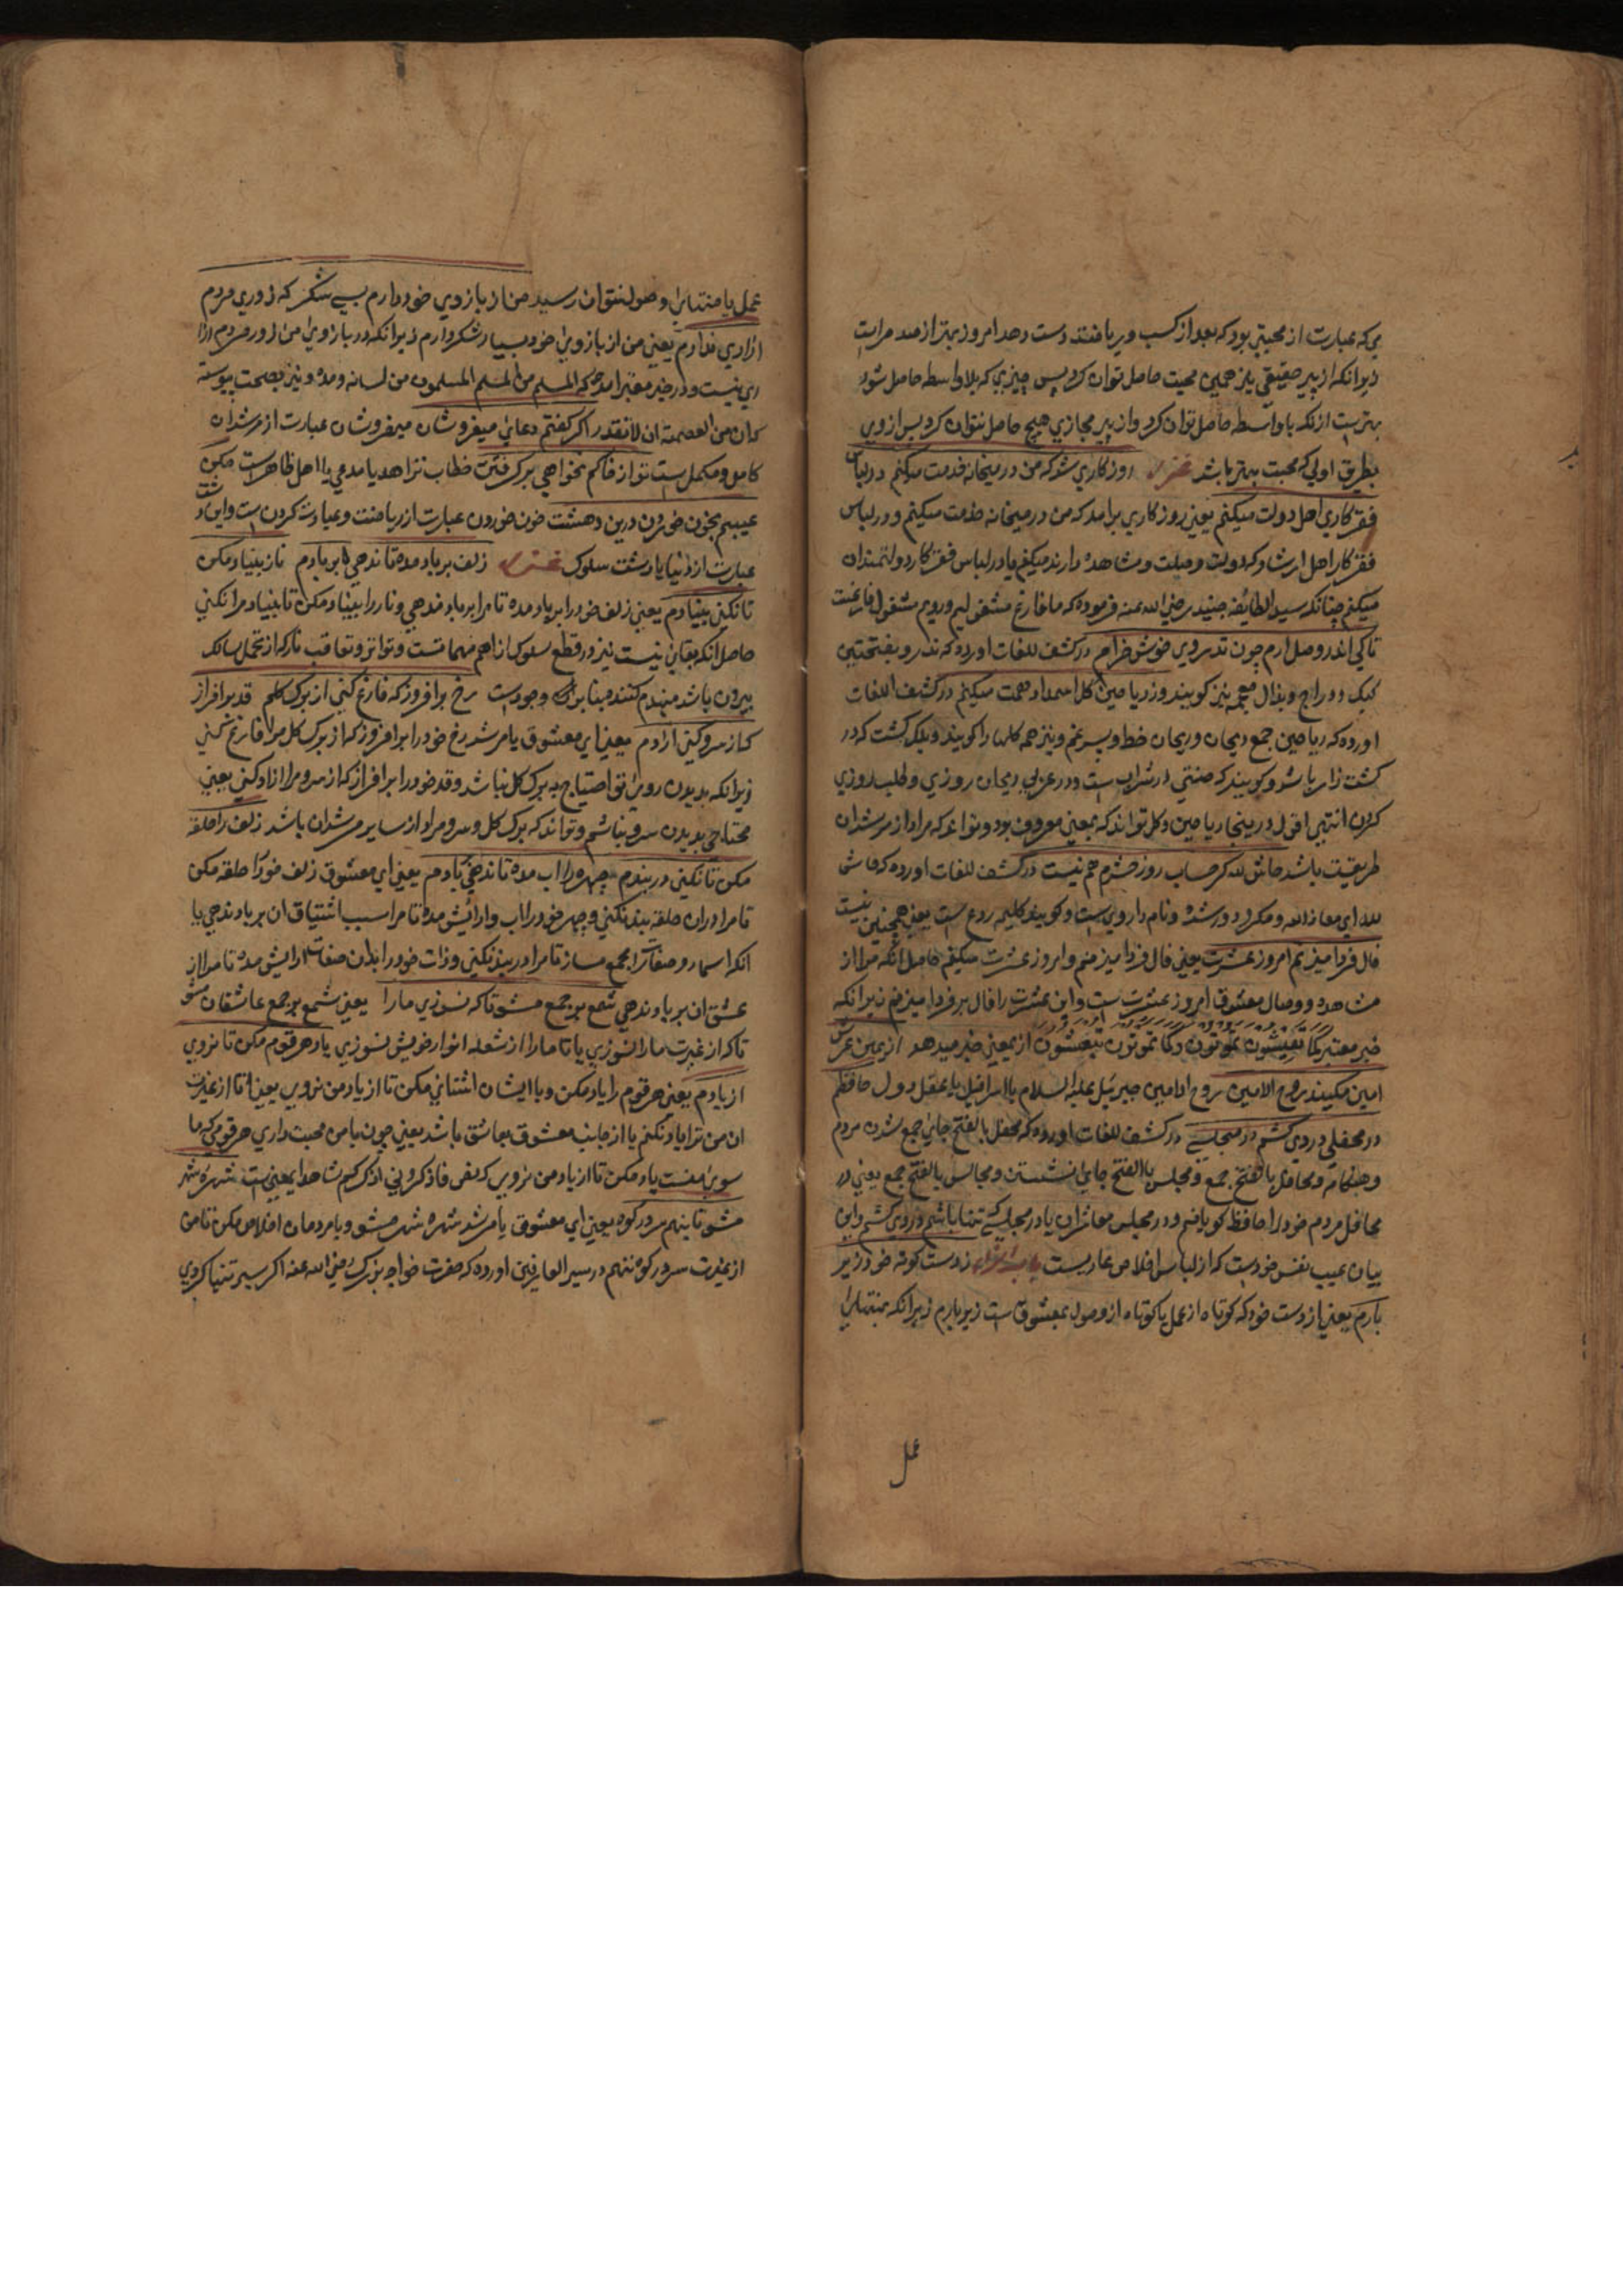 می که عبارت از محبتی بود که بعد از کسب و ریاضت دست دهد امروز بهتر از صد مرات
زیرانکه از پیر حقیقی نیز همین محبت حاصل توان کرد پس چیزی که بلاواسطه حاصل شود
بهترست ازانکه باواسطه حاصل توان کرد و از پیر مجازی هیچ حاصل نتوان کرد پس از وی
بطریق اولی که محبت بهتر باشد روزگاری شد که من در میخانه خدمت میکنم در لباس
فقر کار اهل دولت میکنم یعنی روزگاری برامد که من در میخانه خدمت میکنم و در لباس
فقر کار اهل ارشاد که دولت وصلت و مشاهده دارند میکنم یا در لباس فقر کار دولتمندان
میکنم چنانکه سید الطائفه جنید رضی الله عنه فرموده که ما فارغ مشغولیم و رویم مشغول فارغست
تا کی اندر وصل ارم چون تدروی خوش خرام در کشف اللغات اورده که تذرو بفتحتین
کبک و دراج و بذال معجمه نیز کویند و ز ریاحین کل استمداد همت میکنم در کشف اللغات
اورده که ریاحین جمع ریحان و ریحان خط و سپرغم و نیز همه کلها را کویند و بلک کشت که در
کشت زار باشد و کویند که صنفی از شراب ست و در عربی ریحان روزی و طلب روزی
کردن انتهی اقول در ینجا ریاحین و کل تواند که بمعنی معروف بود و تواند که مراد از مرشدان
طریقت باشد حاش لله کز حساب روز حشرم هم نیست در کشف اللغات اورده که حاش
لله ای معاذ الله و مکرد و دور شده و نام داروی ست و کویند کلیمه ردع است یعنی همچنین نیست
فال فردا میزنم امروز عشرت یعنی فال فردا میزنم و امروز عشرت میکنم حاصل انکه مرا از
مشاهده و وصال معشوق امروز عشرت ست و این عشرت را فال بر فردا میزنم زیرانکه
خبر معتبر کما تعیشون تموتون و کما تموتون تبعثون از یمعنی خبر میدهد از یمین عرش
امین میکند روح الامین روح الامین جبرئیل علیه السلام یا اسرافیل یا عقل اول حافظم
در محفلی دردی کشم در مجلسی در کشف اللغات اورده که محفل بالفتح جای جمع شدن مردم
و هنکامه و محافل بالفتح جمع و مجلس بالفتح جای نشستن و مجالس بالفتح جمع یعنی در
محافل مردم خود را حافظ کویانم و در مجلس معاشران یا در مجلسی که تنها باشم دردی کشم و این
بیان عیب نفس خودست که از لباس اخلاص عاریست ز دست کوته خود زیر
بارم یعنی از دست خود که کوتاه از عمل یا کوتاه از وصول بمعشوق است زیر بارم زیرانکه بمنتهای
عمل
عمل یا منتهای وصول نتوان رسید من از بازوی خود دارم بسی شکر که زور مردم
ازاری ندارم یعنی من از بازوی خود بسیار شکر دارم زیرانکه در بازوی من زور مردم ازا
ری نیست و در خبر معتبر امده که المسلم من المسلم المسلمون من لسانه و یده و نیز بصحت پیوسته
که ان من العصمة ان لا تقدر اکر کفتم دعای میفروشان میفروشان عبارت از مرشدان
کامل و مکمل ست تو از خاکم نخواهی برکرفتن خطاب بزاهد یا مدعی یا اهل ظاهر ست مکن
عیبم بخون خوردن درین دشت خون خوردن عبارت از ریاضت و عبادت کردن ست و این دشت
عبارت از دنیا یا دشت سلوک زلف بر باد مده تا ندهی بر بادم ناز بنیاد مکن
تا نکنی بنیادم یعنی زلف خود را بر باد مده تا مرا بر باد ندهی و ناز را بنیاد مکن تا بنیاد مرا نکنی
حاصل انکه بقای نیست نیز در قطع سلوک از اهم مهمات ست و تواتر و تعاقب ناز که از تحمل سالک
بیرون باشد منهدم کننده بنا بود وجودست رخ برافروز که فارغ کنی از برک کلم قد برافراز
که از سرو کنی ازادم یعنی ای معشوق یا مرشد رخ خود را برافروز که از برک کل مرا فارغ کنی
زیرانکه بدیدن روی تو احتیاج به برک کل نباشد و قد خود را برافراز که از سرو مرا ازاد کنی یعنی
محتاج بدیدن سرو نباشم و تواند که برک کل و سرو مراد از سایر مرشدان باشد زلف را حلقه
مکن تا نکنی در بندم چهره را اب مده تا ندهی بادم یعنی ای معشوق زلف خود را حلقه مکن
تا مرا دران حلقه بند نکنی و چهره خود را اب و ارائیش مده تا مرا سبب اشتیاق ان بر باد ندهی یا
انکه اسماء و صفات را مجمع مساز تا مرا در بند نکنی و ذات خود را بدان صفات ارایش مده تا مرا از
عشق ان بر باد ندهی شمع هر جمع مشو تا که نسوزی مارا یعنی شمع هر جمع عاشقان مشو
تا که از غیرت مارا نسوزی یا تا مارا از شعله انوار خویش نسوزی یاد هر قوم مکن تا نروی
از یادم یعنی هر قوم را یاد مکن و با ایشان اشنائی مکن تا از یاد من نروی یعنی تا از غیرت
ان من ترا یاد نکنم یا از جانب معشوق بعاشق باشد یعنی چون با من محبت داری هر قومی که ما
سوی منست یاد مکن تا از یاد من نروی که نص فاذکرونی اذکرکم شاهد ایمعنی ست شهره شهر
مشو تا ننهم سر در کوه یعنی ای معشوق یا مرشد شهره شهر مشو و با مردمان اخلاص مکن تا من
از غیرت سر در کوه ننهم در سیر العارفین اورده که حضرت خواجه بزرک رضی الله عنه اکثر سیر تنها کردی